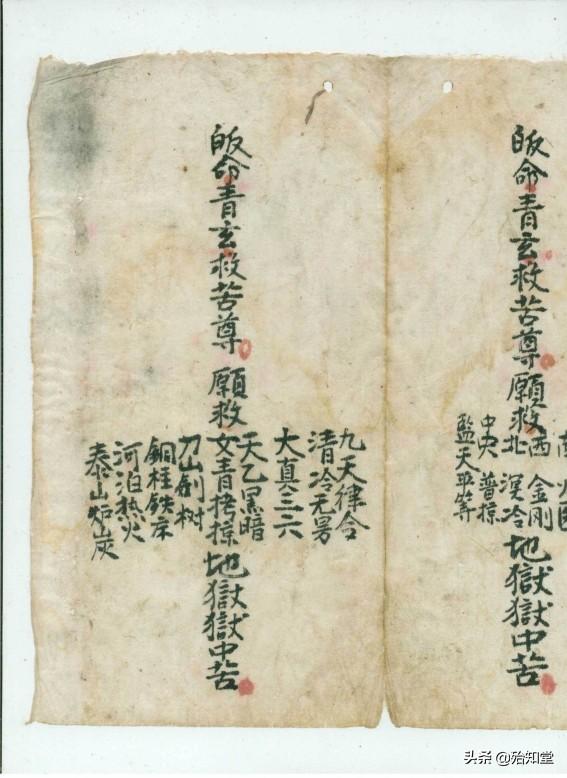 皈命青玄救苦尊願救
南 火
西 金剛
北 溟冷
中央 普掠
監天平等
地獄獄中苦
皈命青玄救苦尊 願救
九天律令
清冷无
大真三六
天乙黑暗
女青拷掠
刀山劍树
銅柱鉄床
河泊热火
泰山炉炭
地獄獄中苦
头条 @殆知堂